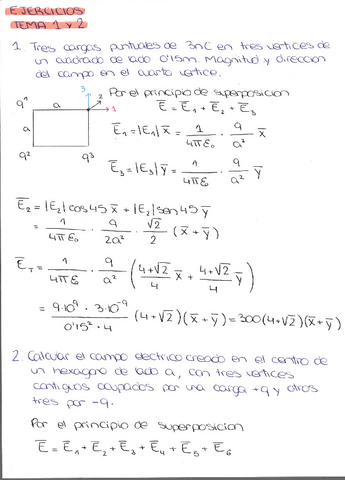 EJERCICIOS
TEMA 1 y 2
1. Tres cargas puntuales de 3nC en tres vertices de
un cuadrado de lado 0'15m. Magnitud y direccion
del campo en el cuarto vertice.
Por el principio de superposicion
E̅ = E̅₁ + E̅₂ + E̅₃
3
2
1
q¹ a
a
q² q³
E̅₁ = |E₁| x̅ = 1/(4πε₀) · q/a² x̅
E̅₃ = |E₃| y̅ = 1/(4πε₀) · q/a² y̅
E̅₂ = |E₂| cos45 x̅ + |E₂| sen45 y̅
= 1/(4πε₀) · q/2a² · √2/2 (x̅ + y̅)
E̅_T = 1/(4πε) · q/a² ((4+√2)/4 x̅ + (4+√2)/4 y̅)
= (9·10⁹ · 3·10⁻⁹)/(0'15² · 4) (4+√2)(x̅ + y̅) = 300(4+√2)(x̅ + y̅)
2. Calcular el campo electrico creado en el centro de
un hexagono de lado a, con tres vertices
contiguos ocupados por una carga +q y otros
tres por -q.
Por el principio de superposicion
E̅ = E̅₁ + E̅₂ + E̅₃ + E̅₄ + E̅₅ + E̅₆